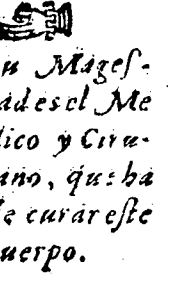 u Mages-
ad es el Me
dico y Ciru-
ano, que ha
de curar este
uerpo.